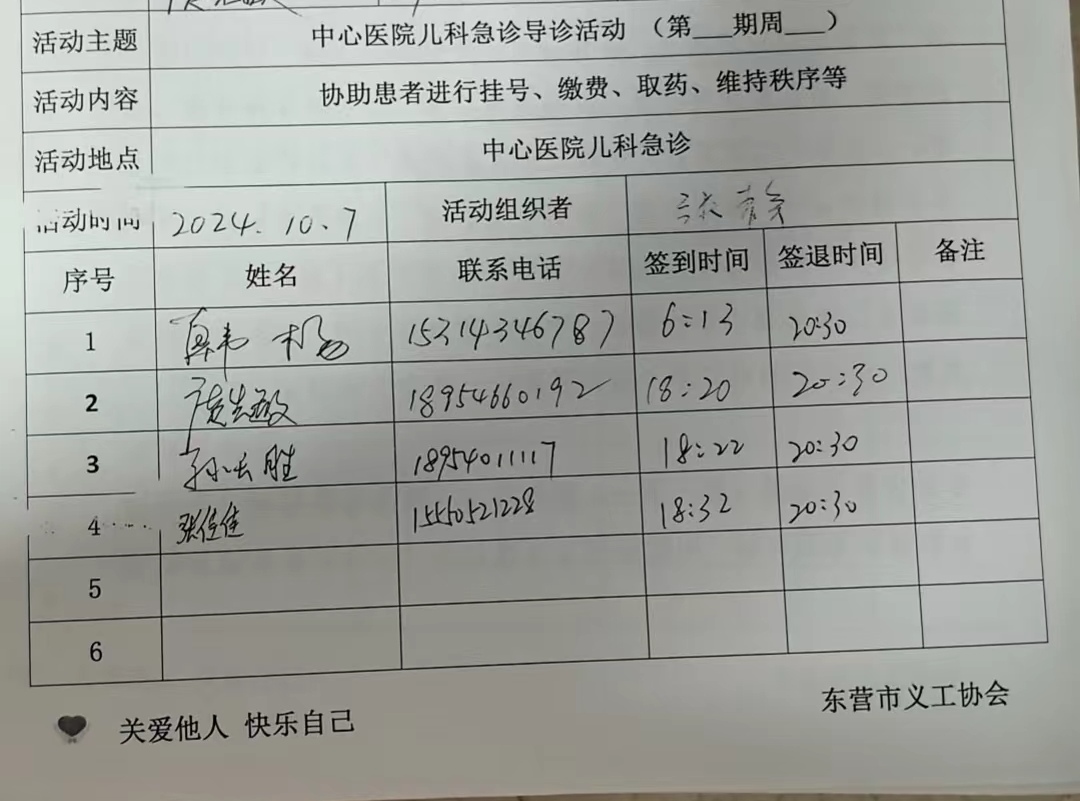 活动主题 中心医院儿科急诊导诊活动 （第___期周___）
活动内容 协助患者进行挂号、缴费、取药、维持秩序等
活动地点 中心医院儿科急诊
活动时间 2024.10.7 活动组织者
序号 姓名 联系电话 签到时间 签退时间 备注
1 15314346787 6:13 20:30
2 18954660192 18:20 20:30
3 孙长胜 18954011117 18:22 20:30
4 张佳佳 15550521228 18:32 20:30
5
6
关爱他人 快乐自己
东营市义工协会